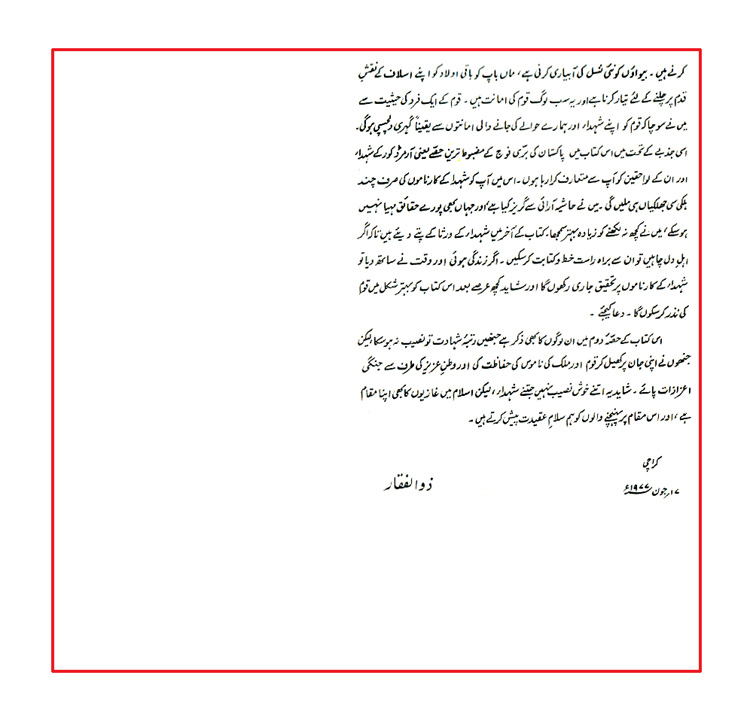 کرنے ہیں ۔ بیواؤں کو نئی نسل کی آبیاری کرنی ہے، ماں باپ کو باقی اولاد کو اپنے اسلاف کے نقشِ
قدم پر چلنے کے لئے تیار کرنا ہے اور یہ سب لوگ قوم کی امانت ہیں ۔ قوم کے ایک فرد کی حیثیت سے
میں نے سوچا کہ قوم کو اپنے شہداء اور ہمارے حوالے کی جانے والی امانتوں سے یقیناً گہری دلچسپی ہوگی۔
اسی جذبے کے تحت میں اس کتاب میں پاکستان کی بری فوج کے مضبوط ترین حصّے یعنی آرمرڈ کور کے شہداء
اور ان کے لواحقین کو آپ سے متعارف کرا رہا ہوں ۔ اس میں آپ کو شہداء کے کارناموں کی صرف چند
ہلکی سی جھلکیاں ہی ملیں گی ۔ میں نے حاشیہ آرائی سے گریز کیا ہے اور جہاں بھی پورے حقائق مہیا نہیں
ہو سکے، میں نے کچھ نہ لکھنے کو زیادہ بہتر سمجھا، کتاب کے آخر میں شہداء کے ورثا کے پتے دیئے ہیں تاکہ اگر
اہلِ دل چاہیں تو ان سے براہ راست خط و کتابت کر سکیں ۔ اگر زندگی ہوئی اور وقت نے ساتھ دیا تو
شہداء کے کارناموں پر تحقیق جاری رکھوں گا اور شاید کچھ عرصے بعد اس کتاب کو بہتر شکل میں قوم
کی نذر کر سکوں گا ۔ دعا کیجئے ۔
اس کتاب کے حصّہ دوم میں ان لوگوں کا بھی ذکر ہے جنھیں رتبۂ شہادت تو نصیب نہ ہو سکا لیکن
جنھوں نے اپنی جان پر کھیل کر قوم اور ملک کی ناموس کی حفاظت کی اور وطنِ عزیز کی طرف سے جنگی
اعزازات پائے ۔ شاید یہ اتنے خوش نصیب نہیں جتنے شہداء، لیکن اسلام میں غازیوں کا بھی اپنا مقام
ہے، اور اس مقام پر پہنچنے والوں کو ہم سلامِ عقیدت پیش کرتے ہیں ۔
کراچی
۱۷؍جون ۱۹۷۷ء
ذوالفقار